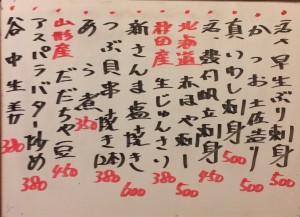 早生ぶり刺身 500
かつお土佐造り 500
真いわし刺身 500
殻付帆立刺身 450
北海道 赤ほや刺 500
秋田産 生じゅんさい 380
新さんま塩焼き 600
つぶ貝串焼き(2本) 380
あら煮 350
山形産 だだちゃ豆 450
アスパラバター炒め 380
谷中生姜 380